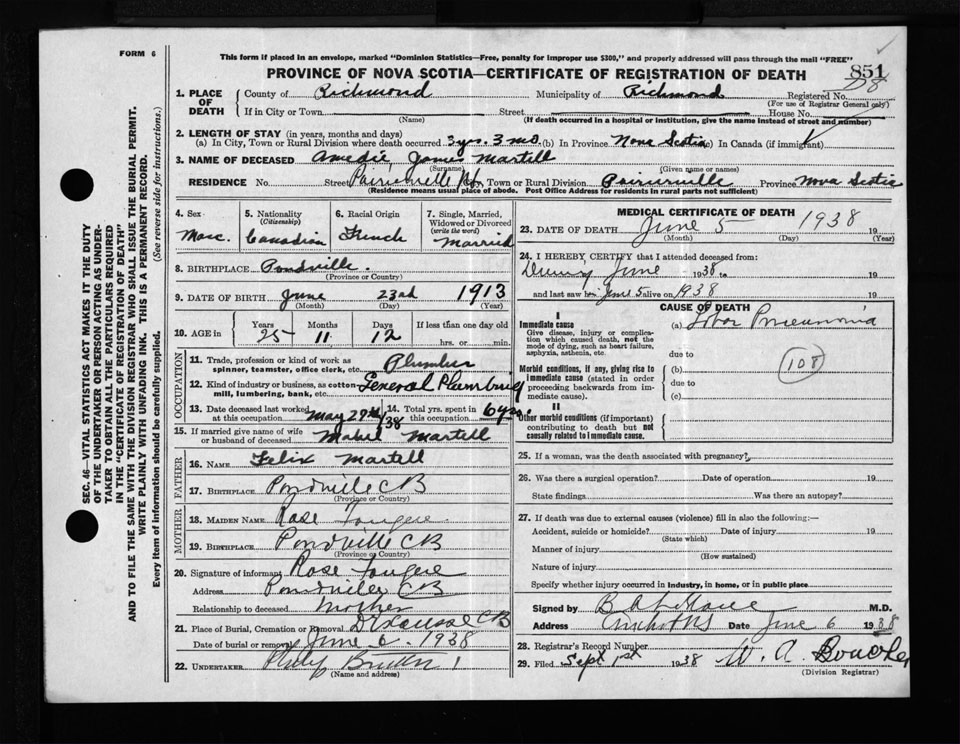 FORM 6
This form if placed in an envelope, marked "Dominion Statistics—Free, penalty for improper use $300," and properly addressed will pass through the mail "FREE"
PROVINCE OF NOVA SCOTIA—CERTIFICATE OF REGISTRATION OF DEATH
851
D8
1. PLACE OF DEATH
County of Richmond Municipality of Richmond Registered No.
(For use of Registrar General only)
If in City or Town Street House No.
(Name) (If death occurred in a hospital or institution, give the name instead of street and number)
2. LENGTH OF STAY (in years, months and days)
(a) In City, Town or Rural Division where death occurred 3 yrs. 3 mo. (b) In Province Nova Scotia (c) In Canada (if immigrant)
3. NAME OF DECEASED Amedie, James Martell
(Surname) (Given name or names)
RESIDENCE No. Street City, Town or Rural Division Poirierville Province Nova Scotia
(Residence means usual place of abode. Post Office Address for residents in rural parts not sufficient)
4. Sex
5. Nationality (Citizenship)
6. Racial Origin
7. Single, Married, Widowed or Divorced (write the word)
Canadian French Married
8. BIRTHPLACE Pondville
(Province or Country)
9. DATE OF BIRTH June 23rd 1913
(Month) (Day) (Year)
10. AGE in Years Months Days If less than one day old
25 11 12 hrs. or min.
OCCUPATION
11. Trade, profession or kind of work as spinner, teamster, office clerk, etc. Plumber
12. Kind of industry or business, as cotton mill, lumbering, bank, etc. General Plumbing
13. Date deceased last worked at this occupation May 29th/38
14. Total yrs. spent in this occupation 6 yrs.
15. If married give name of wife or husband of deceased Mabel Martell
FATHER
16. NAME Felix Martell
17. BIRTHPLACE Pondville CB
(Province or Country)
MOTHER
18. MAIDEN NAME Rose Fougere
19. BIRTHPLACE Pondville CB
(Province or Country)
20. Signature of informant Rose Fougere
Address Pondville CB
Relationship to deceased Mother
21. Place of Burial, Cremation or Removal D'Escousse CB
Date of burial or removal June 6 1938
22. UNDERTAKER
(Name and address)
MEDICAL CERTIFICATE OF DEATH
23. DATE OF DEATH June 5 1938 19
(Month) (Day) (Year)
24. I HEREBY CERTIFY that I attended deceased from:
During June 1938 to 19
and last saw h June 5 alive on 1938 19
CAUSE OF DEATH
I
Immediate cause
Give disease, injury or complication which caused death, not the mode of dying, such as heart failure, asphyxia, asthenia, etc.
(a) Lobar Pneumonia
due to
108
Morbid conditions, if any, giving rise to immediate cause (stated in order proceeding backwards from immediate cause).
(b)
due to
(c)
II
Other morbid conditions (if important) contributing to death but not causally related to immediate cause.
25. If a woman, was the death associated with pregnancy?
26. Was there a surgical operation? Date of operation 19
State findings Was there an autopsy?
27. If death was due to external causes (violence) fill in also the following:—
Accident, suicide or homicide? Date of injury 19
(State which)
Manner of injury
(How sustained)
Nature of injury
Specify whether injury occurred in industry, in home, or in public place
Signed by M.D.
Address Date June 6 1938
28. Registrar's Record Number
29. Filed Sept 1st 1938 W. A.
(Division Registrar)
SEC. 46—VITAL STATISTICS ACT MAKES IT THE DUTY
OF THE UNDERTAKER OR PERSON ACTING AS UNDER-
TAKER TO OBTAIN ALL THE PARTICULARS REQUIRED
IN THE "CERTIFICATE OF REGISTRATION OF DEATH"
AND TO FILE THE SAME WITH THE DIVISION REGISTRAR WHO SHALL ISSUE THE BURIAL PERMIT.
WRITE PLAINLY WITH UNFADING INK. THIS IS A PERMANENT RECORD.
Every item of information should be carefully supplied. (See reverse side for instructions.)